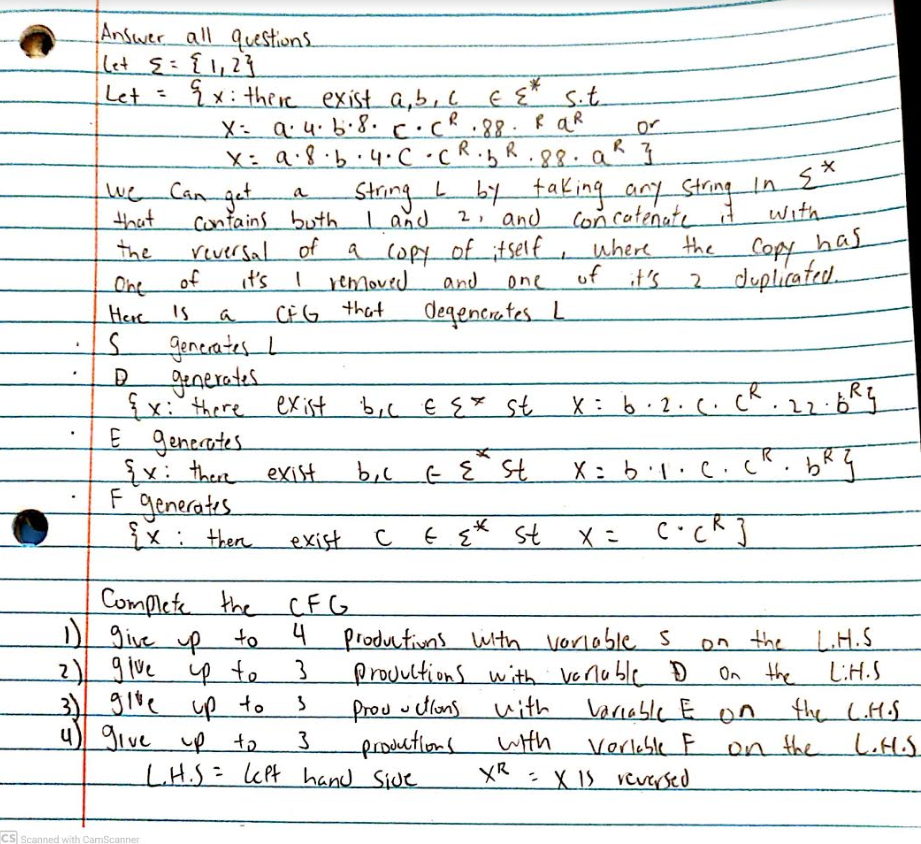 Answer all questions
Let Σ = { 1, 2 }
Let = { x : there exist a, b, c ∈ Σ* s.t.
x = a · 4 · b · 8 · c · cᴿ · 88 · ᴿ aᴿ or
x = a · 8 · b · 4 · c · cᴿ · bᴿ · 88 · aᴿ }
We can get a string L by taking any string in Σ*
that contains both 1 and 2, and concatenate it with
the reversal of a copy of itself, where the copy has
one of it's 1 removed and one of it's 2 duplicated.
Here is a CFG that degenerates L
· S generates L
· D generates
{ x : there exist b, c ∈ Σ* st x = b · 2 · c · cᴿ · 22 · bᴿ }
· E generates
{ x : there exist b, c ∈ Σ* st x = b · 1 · c · cᴿ · bᴿ }
· F generates
{ x : there exist c ∈ Σ* st x = c · cᴿ }
Complete the CFG
1) give up to 4 productions with variable S on the L.H.S
2) give up to 3 productions with variable D on the L.H.S
3) give up to 3 productions with variable E on the L.H.S
4) give up to 3 productions with variable F on the L.H.S
L.H.S = left hand side xᴿ = x is reversed
CS Scanned with CamScanner